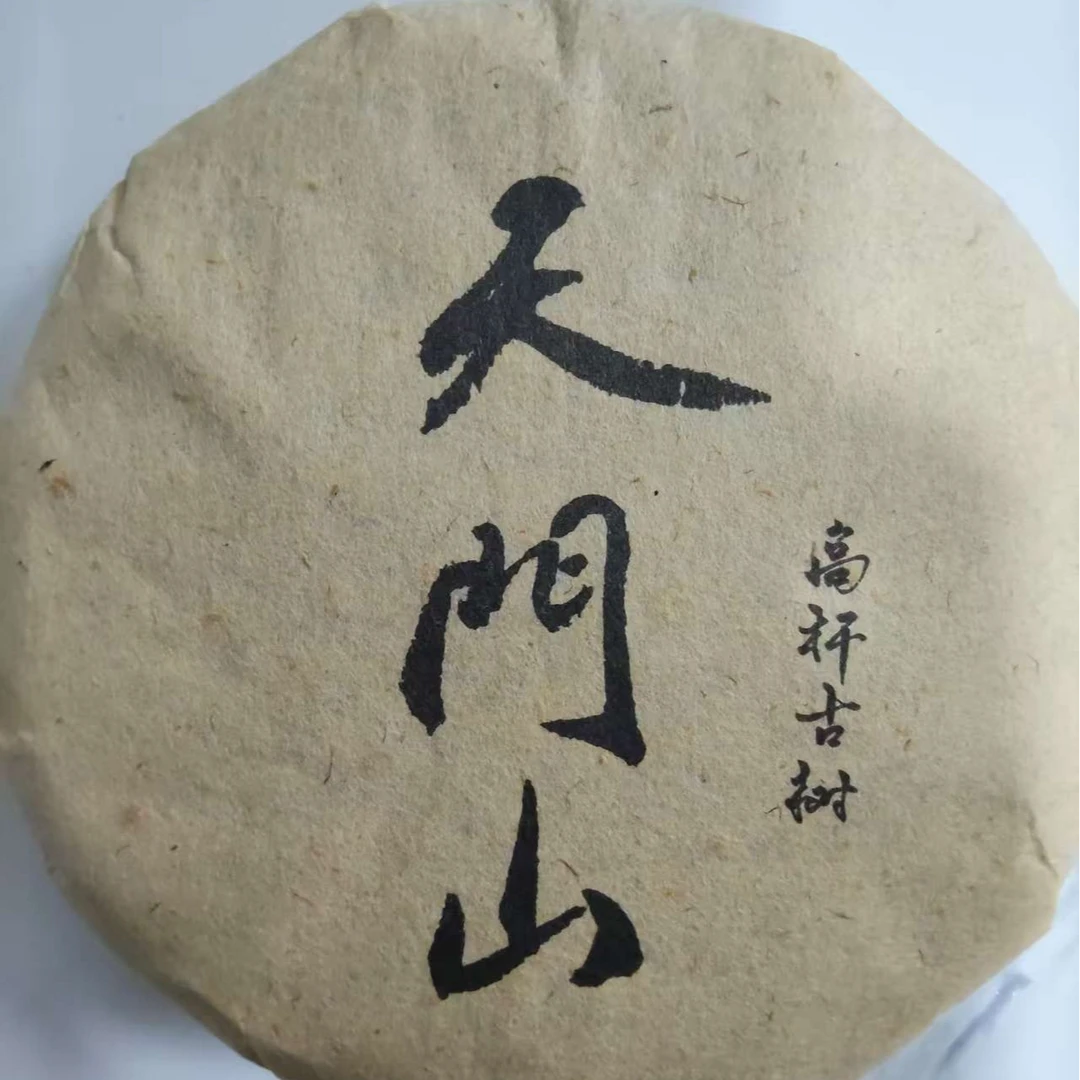 天門山
高杆古树